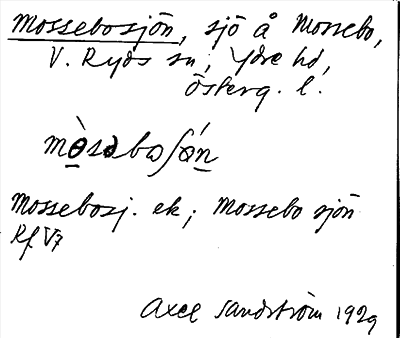 Mossebosjön, sjö å Mossebo,
V. Ryds sn, Ydre hd,
Österg. l.
mòsəboʃǿn
Mossebosj. ek; Mossebo sjön
Rf V7
Axel Sandström 1929